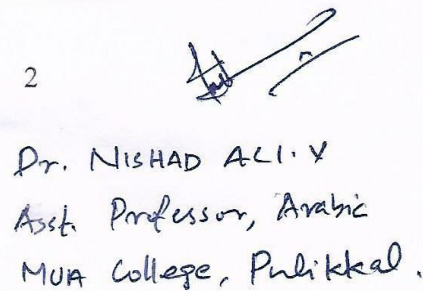 2
Dr. NISHAD ALI. V
Asst. Professor, Arabic
MUA College, Pulikkal.